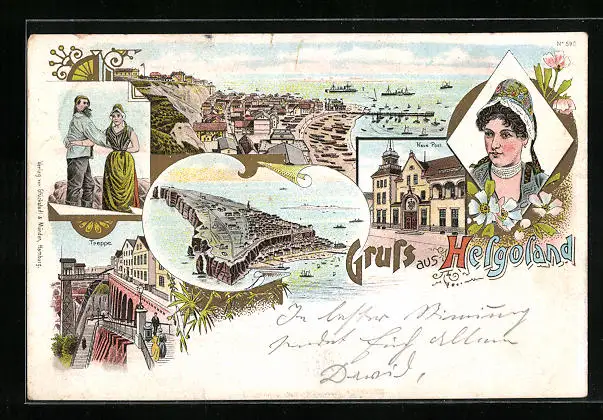 No 590
Neue Post.
Treppe.
Verlag von Glückstadt & Münden, Hamburg.
Gruss aus Helgoland
In bester Stimmung
sendet
David,